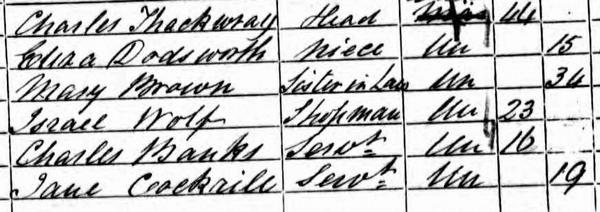 Charles Thackwray Head 44
Eliza Dodsworth Niece Un 15
Mary Brown Sister in Law Un 34
Israel Wolf Shopman Un 23
Charles Banks Servt Un 16
Jane Cockrill Servt Un 19